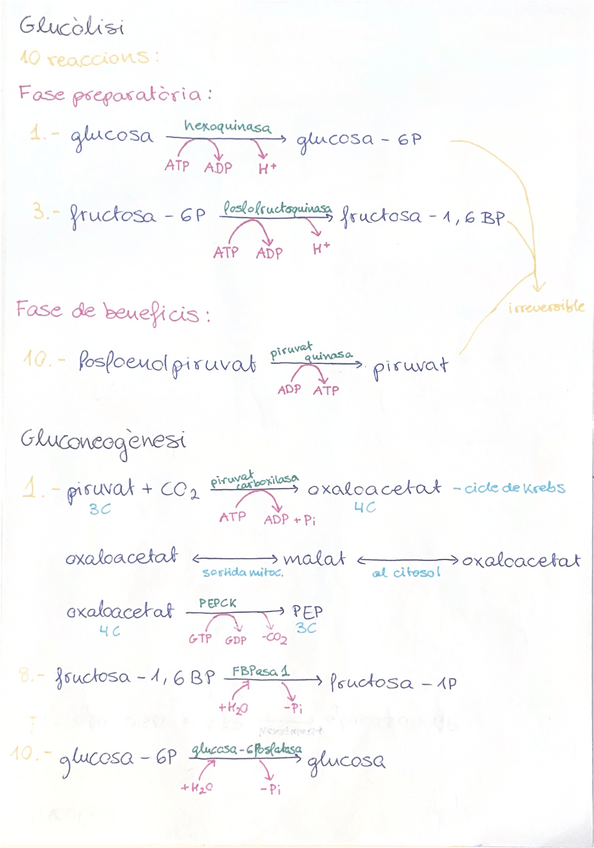 Glucòlisi
10 reaccions:
Fase preparatòria:
1.- glucosa hexoquinasa glucosa - 6P
ATP ADP H+
3.- fructosa - 6P fosfofructoquinasa fructosa - 1,6 BP
ATP ADP H+
irreversible
Fase de beneficis:
10.- fosfoenolpiruvat piruvat quinasa piruvat
ADP ATP
Gluconeogènesi
1.- piruvat + CO2 piruvat carboxilasa oxaloacetat - cicle de Krebs
3C ATP ADP + Pi 4C
oxaloacetat malat oxaloacetat
sortida mitoc. al citosol
oxaloacetat PEPCK PEP
4C GTP GDP -CO2 3C
8.- fructosa - 1,6 BP FBPasa 1 fructosa - 1P
+H2O -Pi
10.- glucosa - 6P glucosa-6fosfatasa glucosa
+H2O -Pi